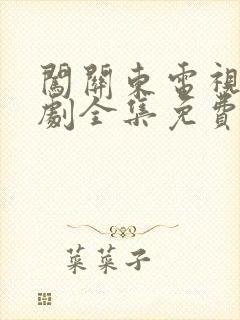 闖關東電視
劇全集免費
菜菜子